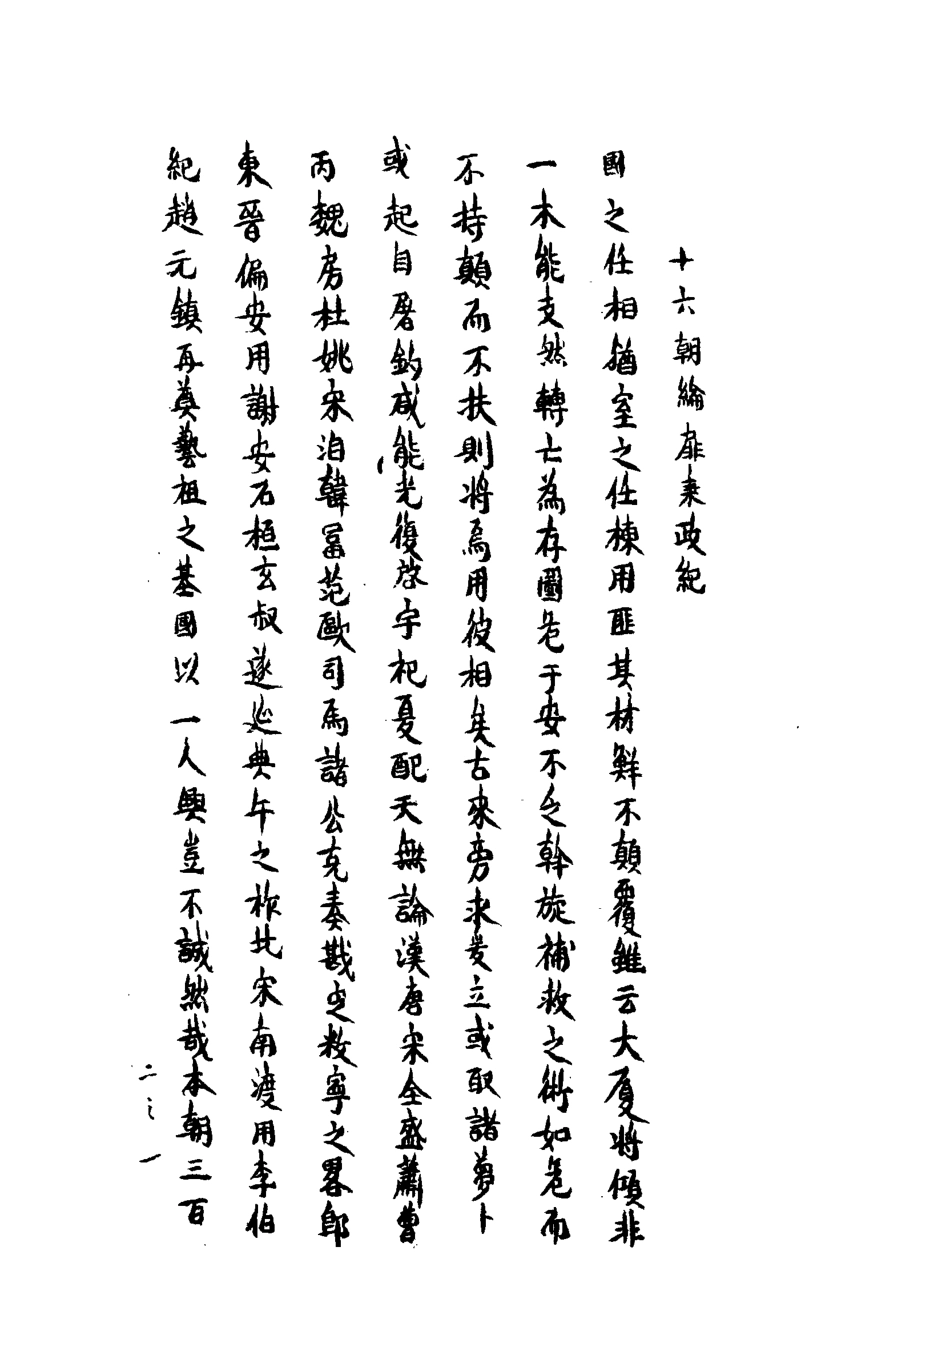 十六朝綸扉秉政紀
國之任相猶室之任棟用匪其材鮮不顛覆雖云大厦將傾非
一木能支然轉亡為存圖危于安不乏斡旋補救之術如危而
不持顛而不扶則將焉用彼相矣古來旁求爰立或取諸夢卜
或起自屠釣咸能光復啓宇祀夏配天無論漢唐宋全盛蕭曹
丙魏房杜姚宋洎韓富范歐司馬諸公克奏戡定敉寧之畧即
東晉偏安用謝安石桓玄叔遂延典午之祚北宋南渡用李伯
紀趙元鎮再奠藝祖之基國以一人興豈不誠然哉本朝三百
二之一